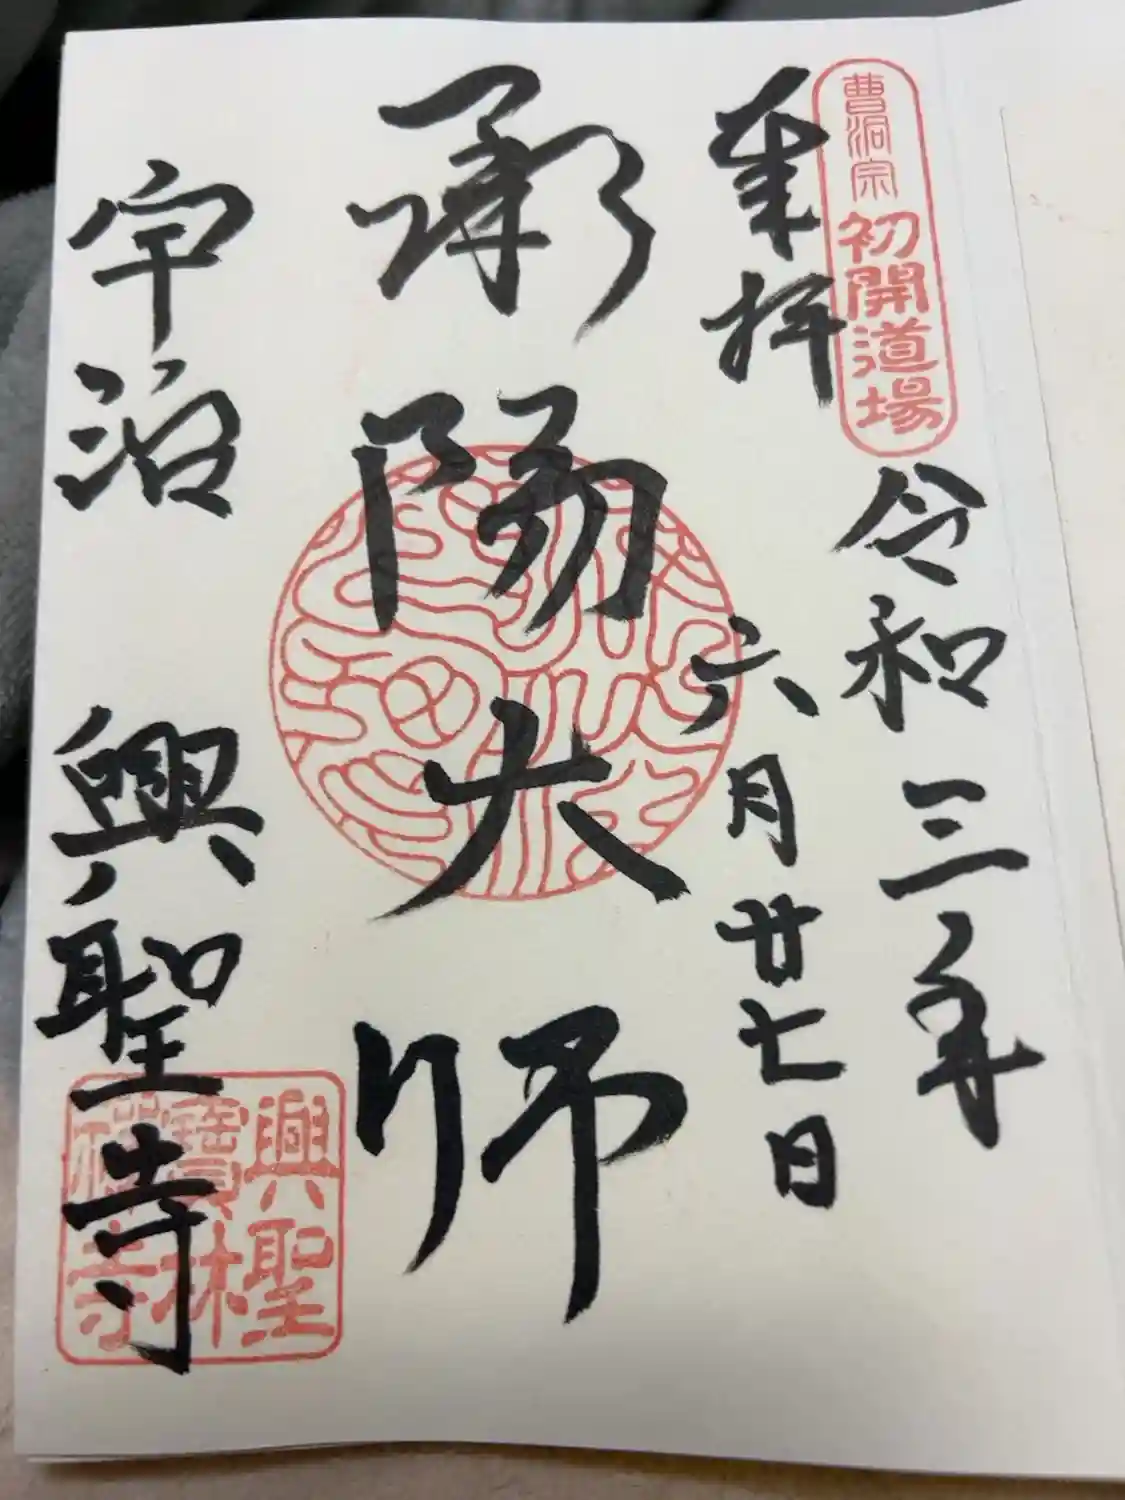 曹洞宗 初開道場
奉拝
令和三年
六月廿七日
承陽大師
宇治 興聖寺
興聖
寶林
禅寺